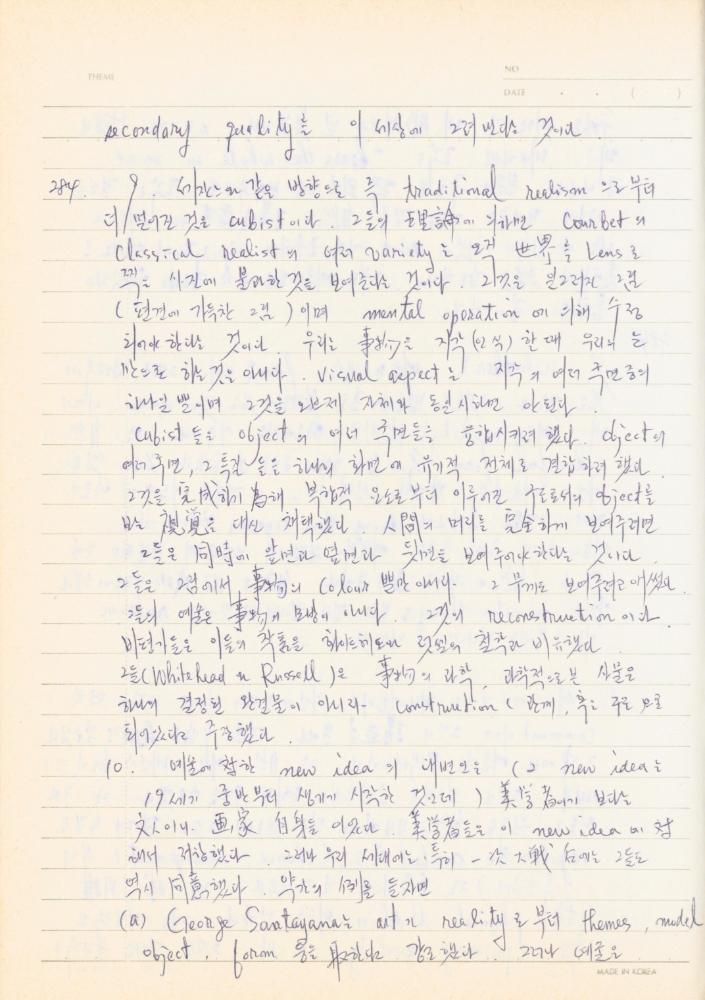 THEME
NO
DATE . . ( )
secondary quality를 이 세상에 그려 낸다는 것이다
284. 9. 세잔느와 같은 방향으로 즉 traditional realism 으로부터
더 멀어진 것은 cubist이다. 그들의 理論에 의하면 Courbet의
classical realist의 여러 variety는 오직 世界를 Lens로
찍은 사진에 불과한 것을 보여준다는 것이다. 그것은 일그러진 그림
(편견에 가득찬 그림) 이며 mental operation에 의해 수정
되어야 한다는 것이다. 우리는 事物을 지각(인식) 할 때 우리의 눈
만으로 하는 것은 아니다. visual aspect는 지각의 여러 국면중의
하나일 뿐이며 그것을 오브제 자체와 동일시하면 안된다.
Cubist들은 object의 여러 국면들을 융합시키려 했다. object의
여러 국면, 그 특질들을 하나의 화면에 유기적 전체로 결합하려 했다.
그것을 完成하기 爲해 복합적 요소로부터 이루어진 구조로서의 object를
보는 視覚을 대신 채택했다. 人間의 머리를 完全하게 보여주려면
그들은 同時에 앞면과 옆면과 뒷면을 보여주어야 한다는 것이다.
그들은 그림에서 事物의 colour 뿐만 아니라 그 무게도 보여주려고 애썼다.
그들의 예술은 事物의 모방이 아니다. 그것의 reconstruction이다.
비평가들은 이들의 작품을 화이트헤드와 럿셀의 철학과 비유했다.
그들(Whitehead와 Russell)은 事物의 과학 과학적으로 본 사물은
하나의 결정된 완결물이 아니라 construction (관계, 혹은 구조)으로
되어있다고 주장했다.
10. 예술에 對한 new idea의 대변인은 (그 new idea는
19세기 중반부터 생기기 시작한 것인데) 美学者이기 보다는
文人이나 画家 自身들이었다. 美学者들은 이 new idea에 対
해서 저항했다. 그러나 우리 세대에는 특히 一次大戦 后에는 그들도
역시 同意했다. 약간의 例를 들자면
(a) George Santayana는 art가 reality로부터 themes, model
object, form 등을 取한다고 강조했다. 그러나 예술은
MADE IN KOREA